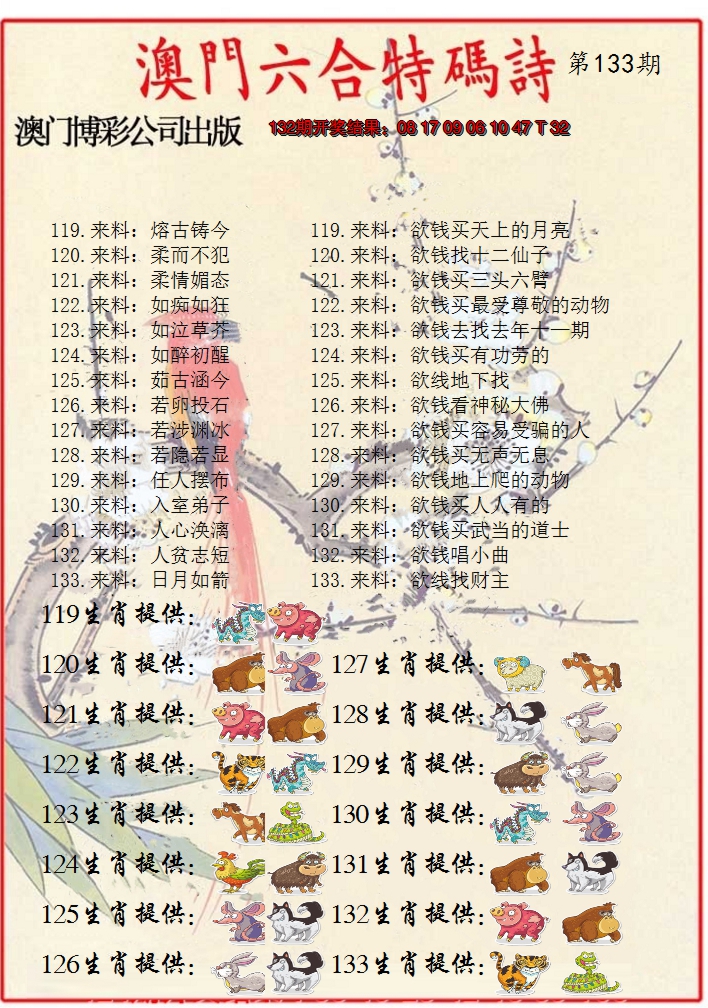 澳門六合特碼詩 第133期
澳门博彩公司出版 132期开奖结果：08 17 09 06 10 47 T 32
119.来料：熔古铸今 119.来料：欲钱买天上的月亮
120.来料：柔而不犯 120.来料：欲钱找十二仙子
121.来料：柔情媚态 121.来料：欲钱买三头六臂
122.来料：如痴如狂 122.来料：欲钱买最受尊敬的动物
123.来料：如泣草芥 123.来料：欲钱去找去年十一期
124.来料：如醉初醒 124.来料：欲钱买有功劳的
125.来料：茹古涵今 125.来料：欲线地下找
126.来料：若卵投石 126.来料：欲钱看神秘大佛
127.来料：若涉渊冰 127.来料：欲钱买容易受骗的人
128.来料：若隐若显 128.来料：欲钱买无声无息
129.来料：任人摆布 129.来料：欲钱地上爬的动物
130.来料：入室弟子 130.来料：欲钱买人人有的
131.来料：人心涣漓 131.来料：欲钱买武当的道士
132.来料：人贫志短 132.来料：欲钱唱小曲
133.来料：日月如箭 133.来料：欲线找财主
119生肖提供：
120生肖提供： 127生肖提供：
121生肖提供： 128生肖提供：
122生肖提供： 129生肖提供：
123生肖提供： 130生肖提供：
124生肖提供： 131生肖提供：
125生肖提供： 132生肖提供：
126生肖提供： 133生肖提供：